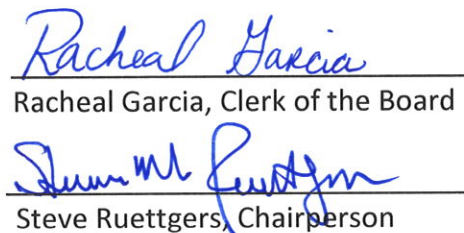 Racheal Garcia
Racheal Garcia, Clerk of the Board
Steve Ruettgers, Chairperson